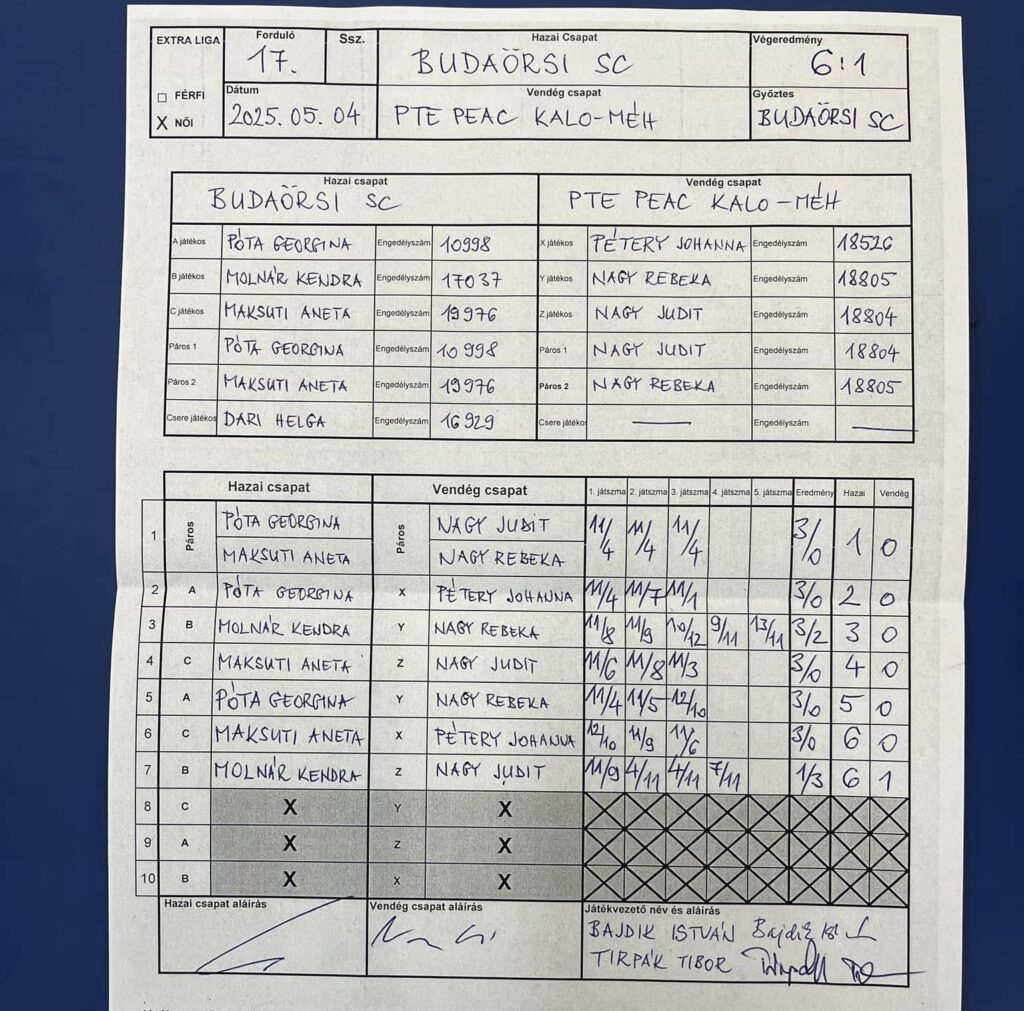 EXTRA LIGA Forduló Ssz. Hazai Csapat Végeredmény
17. BUDAÖRSI SC 6:1
□ FÉRFI Dátum Vendég csapat Győztes
X NŐI 2025.05.04 PTE PEAC KALO-MÉH BUDAÖRSI SC
Hazai csapat Vendég csapat
BUDAÖRSI SC PTE PEAC KALO-MÉH
A játékos PÓTA GEORGINA Engedélyszám 10998 X játékos PÉTERY JOHANNA Engedélyszám 18526
B játékos MOLNÁR KENDRA Engedélyszám 17037 Y játékos NAGY REBEKA Engedélyszám 18805
C játékos MAKSUTI ANETA Engedélyszám 19976 Z játékos NAGY JUDIT Engedélyszám 18804
Páros 1 PÓTA GEORGINA Engedélyszám 10998 Páros 1 NAGY JUDIT Engedélyszám 18804
Páros 2 MAKSUTI ANETA Engedélyszám 19976 Páros 2 NAGY REBEKA Engedélyszám 18805
Csere játékos DARI HELGA Engedélyszám 16929 Csere játékos — Engedélyszám —
Hazai csapat Vendég csapat 1. játszma 2. játszma 3. játszma 4. játszma 5. játszma Eredmény Hazai Vendég
1 Páros PÓTA GEORGINA Páros NAGY JUDIT 11/4 11/4 11/4 3/0 1 0
MAKSUTI ANETA NAGY REBEKA
2 A PÓTA GEORGINA X PÉTERY JOHANNA 11/4 11/7 11/1 3/0 2 0
3 B MOLNÁR KENDRA Y NAGY REBEKA 11/8 11/9 10/12 9/11 13/11 3/2 3 0
4 C MAKSUTI ANETA Z NAGY JUDIT 11/6 11/8 11/3 3/0 4 0
5 A PÓTA GEORGINA Y NAGY REBEKA 11/4 11/5 12/10 3/0 5 0
6 C MAKSUTI ANETA X PÉTERY JOHANNA 12/10 11/9 11/6 3/0 6 0
7 B MOLNÁR KENDRA Z NAGY JUDIT 11/9 4/11 4/11 7/11 1/3 6 1
8 C X Y X
9 A X Z X
10 B X X X
Hazai csapat aláírás Vendég csapat aláírás Játékvezető név és aláírás
BAJDIK ISTVÁN
TIRPÁK TIBOR